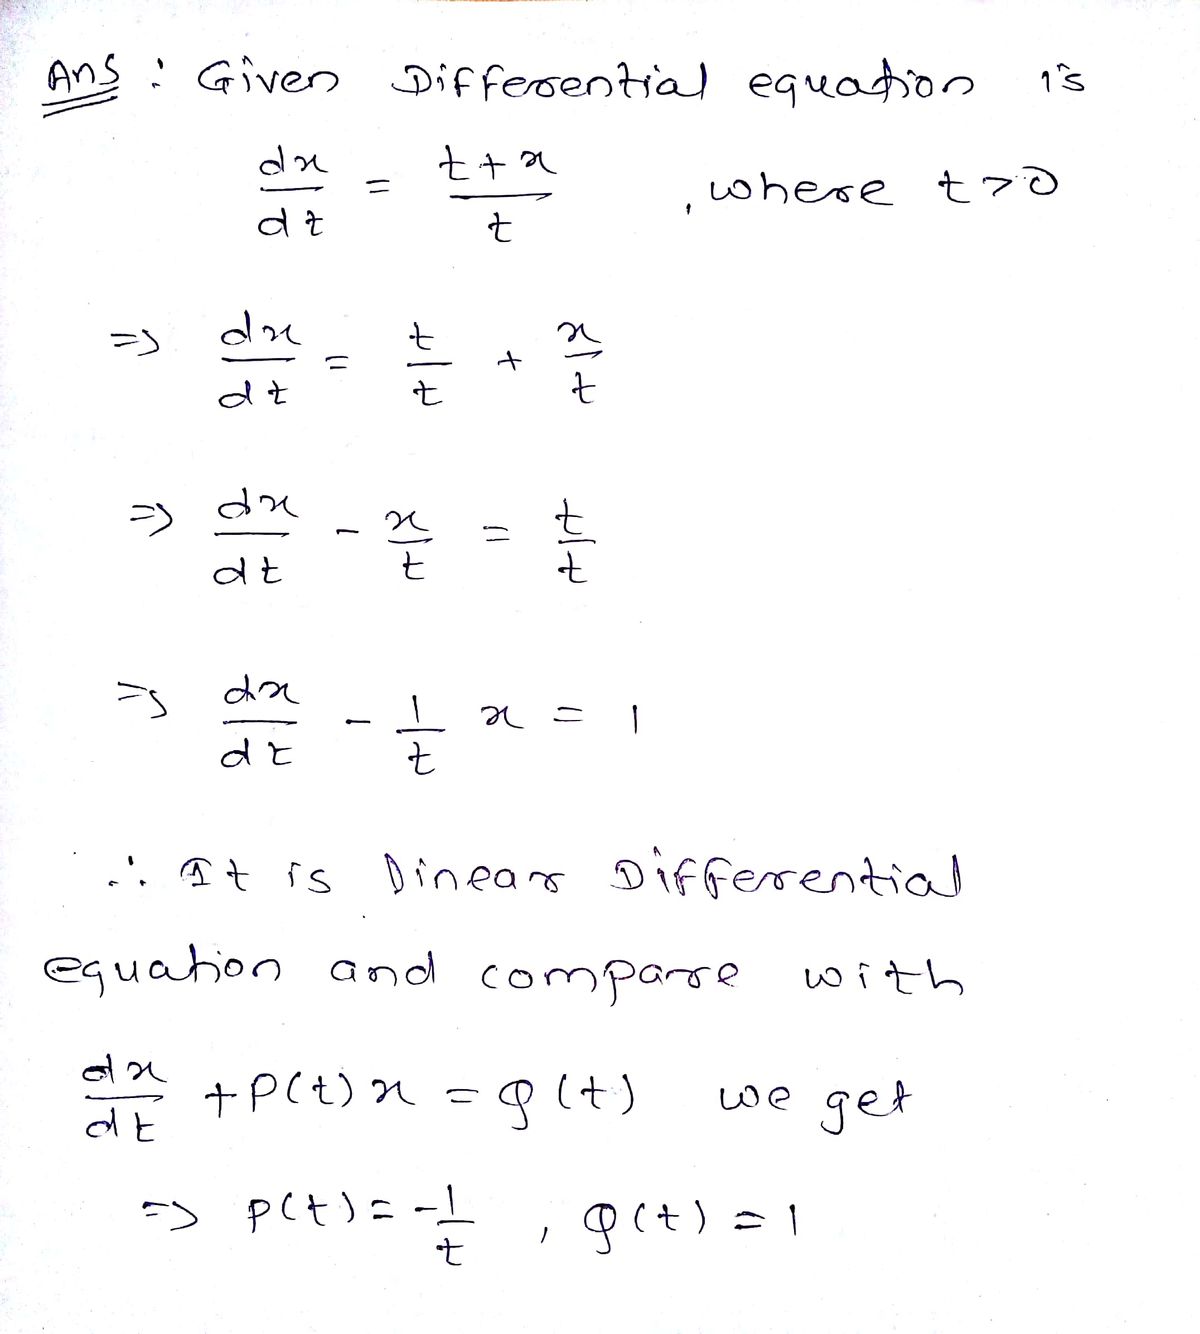 Ans : Given Differential equation is
dx/dt = t+x/t , where t>0
=> dx/dt = t/t + x/t
=> dx/dt - x/t = t/t
=> dx/dt - 1/t x = 1
∴ It is Linear Differential
equation and compare with
dx/dt + P(t) x = Q(t) we get
=> P(t) = -1/t , Q(t) = 1